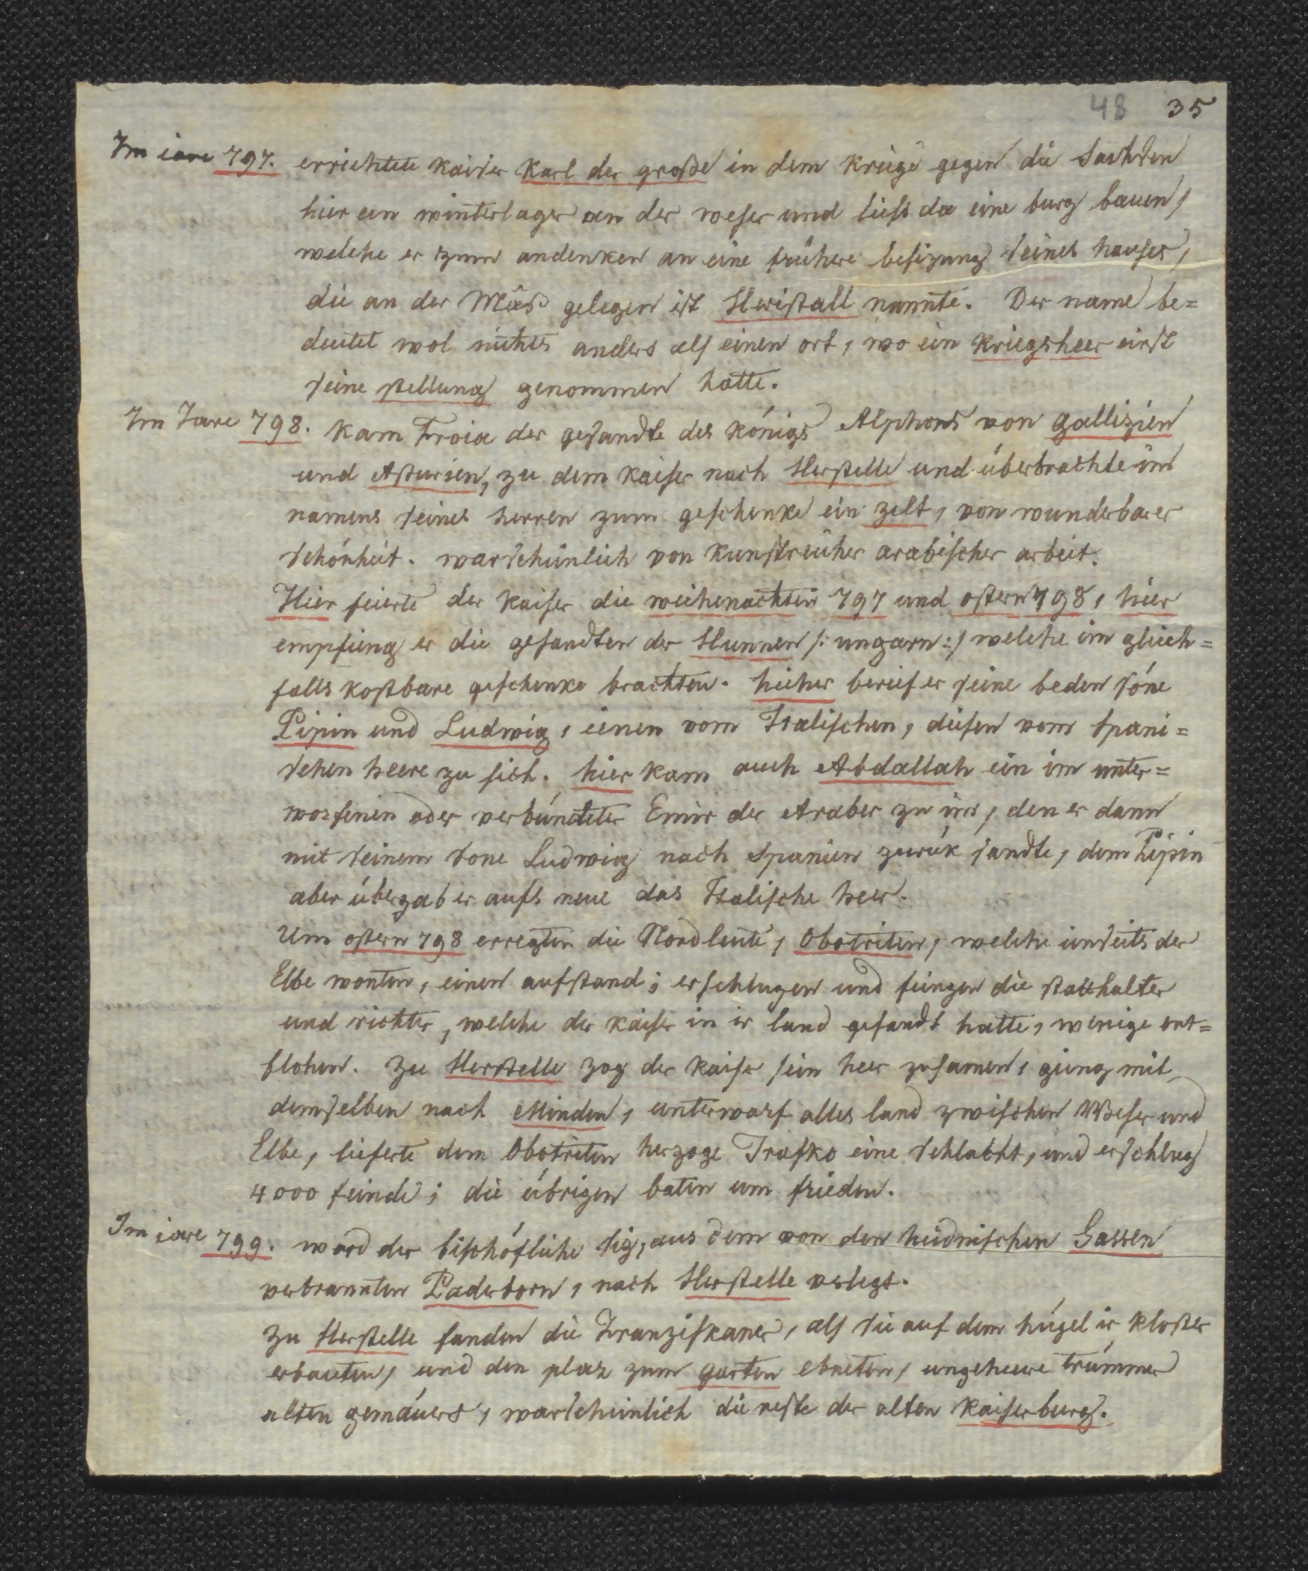 48 35
Im iare 797. errichtete kaiser Karl der große in dem kriege gegen die Sachsen
hier ein winterlager an der weser und liess da eine burg bauen,
welche er zum andenken an eine frühere besizung seines hauses,
die an der Mās gelegen ist Heristall nannte. Der name be=
deutet wol nichts anders als einen ort, wo ein kriegsheer einst
seine stellung genommen hatte.
Im Jare 798. kam Froia der gesandte des königs Alphons von gallizien
und Asturien, zu dem kaiser nach Herstelle und überbrachte im
namens seines herren zum geschenke ein zelt, von wunderbarer
schönheit. warscheinlich von kunstreicher arabischer arbeit.
Hier feierte der kaiser die weihenachten 797 und ostern 798, hier
empfieng er die gesandten der Hunnen /: ungarn :/ welche im gleich=
falls kostbare geschenke brachten. hieher berief er seine beden söne
Pipin und Ludwig, einen vom Italischen, diesen vom spani=
schen heere zu sich. hier kam auch Abdallah ein im unter=
worfenen oder verbündeter Emir der Araber zu im, den er dann
mit seinem sone Ludwig nach Spanien zurük sandte, dem Pipin
aber übergab er aufs neue das Italische heer.
Um ostern 798 erregten die Nordleute, Obotriten, welche ienseits der
Elbe wonten, einen aufstand; erschlugen und fiengen die statthalter
und richter, welche der kaiser in ir land gesandt hatte, wenige ent=
flohen. Zu Herstelle zog der kaiser sein heer zusamen, gieng mit
demselben nach Minden, unterwarf alles land zwischen Weser und
Elbe, lieferte dem Obotriten herzoge Trasko eine schlacht, und erschlug
4000 feinde; die übrigen baten um frieden.
Im iare 799. ward der bischöfliche siz, aus dem von den heidnischen Sassen
verbrannten Paderborn, nach Herstelle verlegt.
Zu Herstelle fanden die Franziskaner, als sie auf dem hügel ir kloster
erbauten, und den plaz zum garten ebneten, ungeheure trümmer
alten gemäuers, warscheinlich die reste der alten kaiserburg.